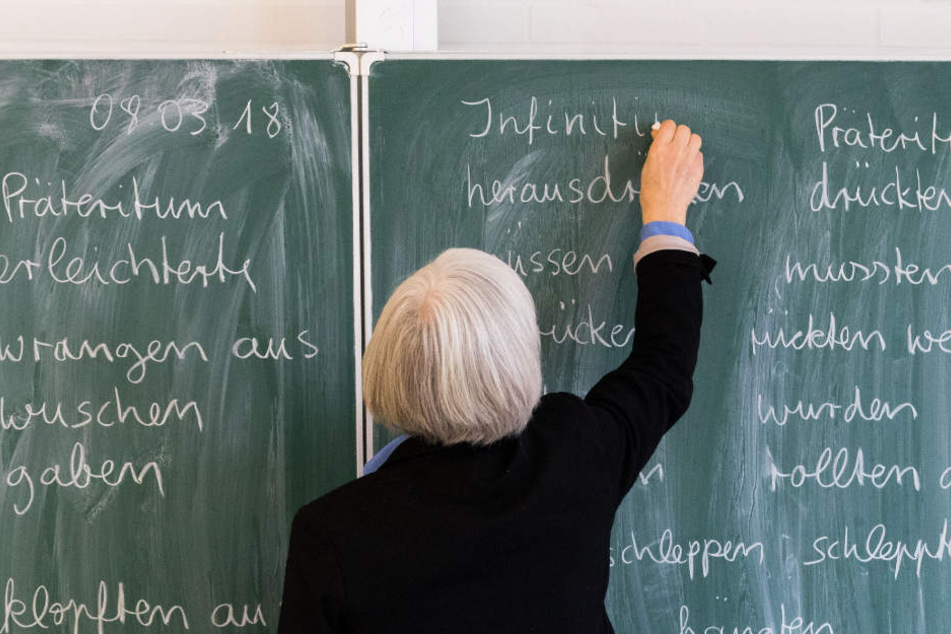 08 03 18
Präteritum
erleichterte
wrangen aus
wuschen
gaben
klopften au
Infiniti
herausdr en
üssen
ücke
n
schleppen
Präterit
drückten
mussten
rückten we
wurden
rollten a
schleppt
hängten